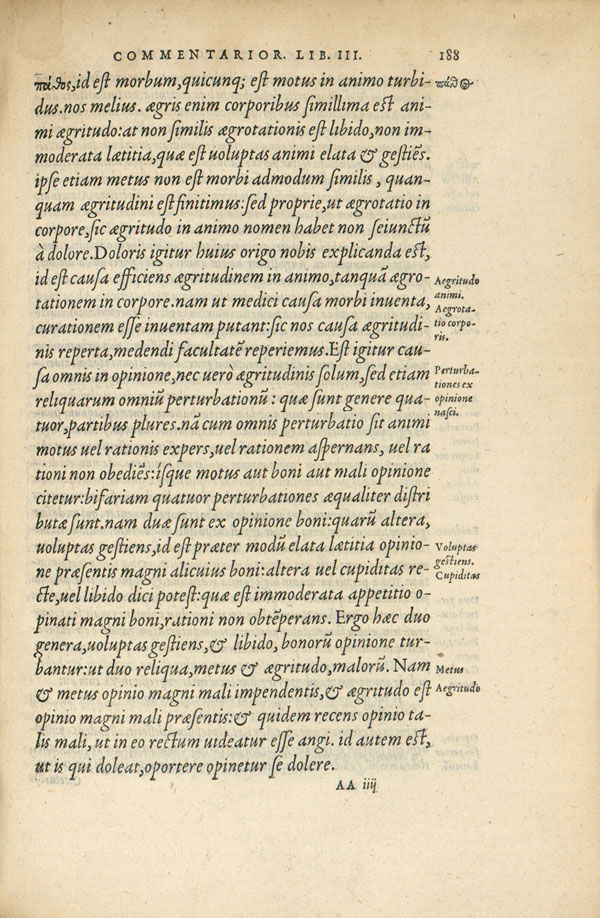 COMMENTARIOR. LIB. III. 188
πάθος, id est morbum, quicunq; est motus in animo turbi-
dus. nos melius. ægris enim corporibus simillima est ani-
mi ægritudo: at non similis ægrotationis est libido, non im-
moderata lætitia, quæ est uoluptas animi elata & gestiẽs.
ipse etiam metus non est morbi admodum similis, quan-
quam ægritudini est finitimus: sed proprie, ut ægrotatio in
corpore, sic ægritudo in animo nomen habet non seiunctũ
à dolore. Doloris igitur huius origo nobis explicanda est,
id est causa efficiens ægritudinem in animo, tanquã ægro-
tationem in corpore. nam ut medici causa morbi inuenta,
curationem esse inuentam putant: sic nos causa ægritudi-
nis reperta, medendi facultatẽ reperiemus. Est igitur cau-
sa omnis in opinione, nec uerò ægritudinis solum, sed etiam
reliquarum omniũ perturbationũ: quæ sunt genere qua-
tuor, partibus plures. nã cum omnis perturbatio sit animi
motus uel rationis expers, uel rationem aspernans, uel ra
tioni non obediẽs: isque motus aut boni aut mali opinione
citetur: bifariam quatuor perturbationes æqualiter distri
butæ sunt. nam duæ sunt ex opinione boni: quarũ altera,
uoluptas gestiens, id est præter modũ elata lætitia opinio-
ne præsentis magni alicuius boni: altera uel cupiditas re-
cte, uel libido dici potest: quæ est immoderata appetitio o-
pinati magni boni, rationi non obtẽperans. Ergo hæc duo
genera, uoluptas gestiens, & libido, bonorũ opinione tur-
bantur: ut duo reliqua, metus & ægritudo, malorũ. Nam
& metus opinio magni mali impendentis, & ægritudo est
opinio magni mali præsentis: & quidem recens opinio ta-
lis mali, ut in eo rectum uideatur esse angi. id autem est,
ut is qui doleat, oportere opinetur se dolere.
AA iiij
πάθος
Aegritudo
animi.
Aegrota-
tio corpo-
ris.
Perturba-
tiones ex
opinione
nasci.
Voluptas
gestiens.
Cupiditas
Metus
Aegritudo